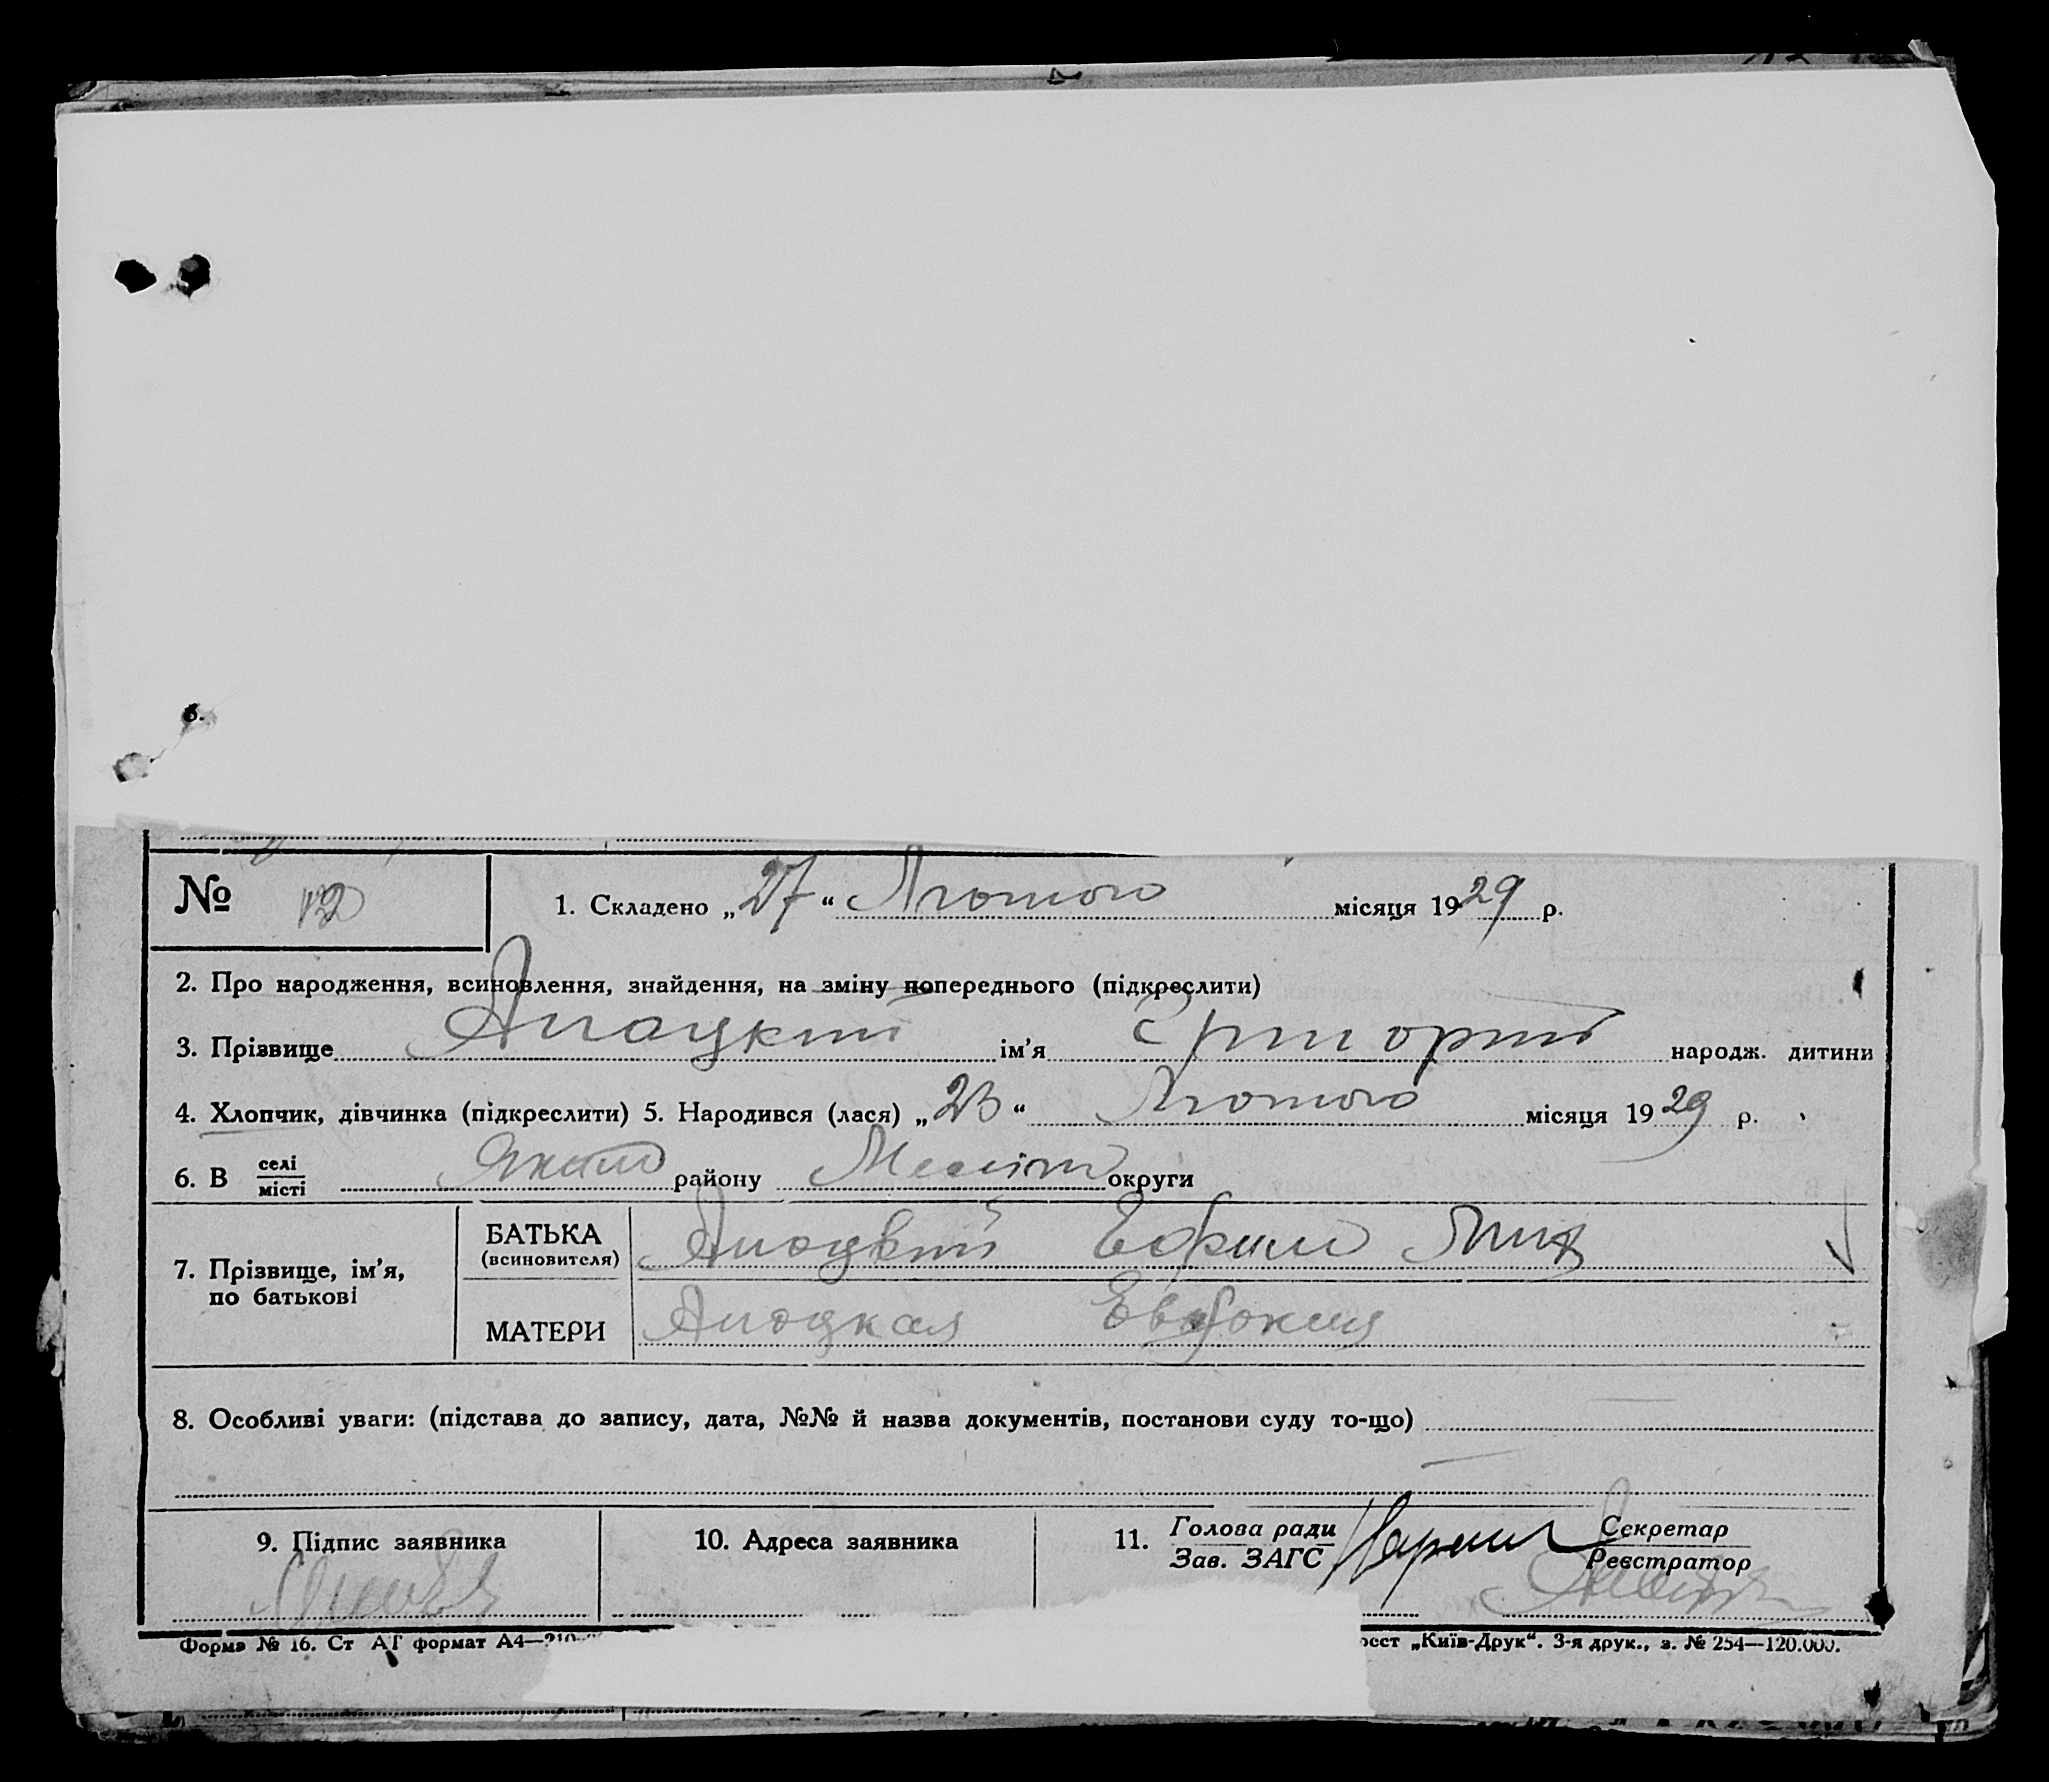 6.
№ 12
1. Складено „27“ Лютого місяця 1929 р.
2. Про народження, всиновлення, знайдення, на зміну попереднього (підкреслити)
3. Прізвище ім’я Григорий народж. дитини
4. Хлопчик, дівчинка (підкреслити) 5. Народився (лася) „23“ Лютого місяця 1929 р.
6. В селі місті району Меліт округи
7. Прізвище, ім’я, по батькові
БАТЬКА (всиновителя) Ефим
МАТЕРИ Евдокия
8. Особливі уваги: (підстава до запису, дата, №№ й назва документів, постанови суду то-що)
9. Підпис заявника
10. Адреса заявника
11. Голова ради Зав. ЗАГС
Секретар Реєстратор
Форма № 16. Ст АТ формат А4—210 „Київ-Друк“. 3-я друк., з. № 254—120.000.